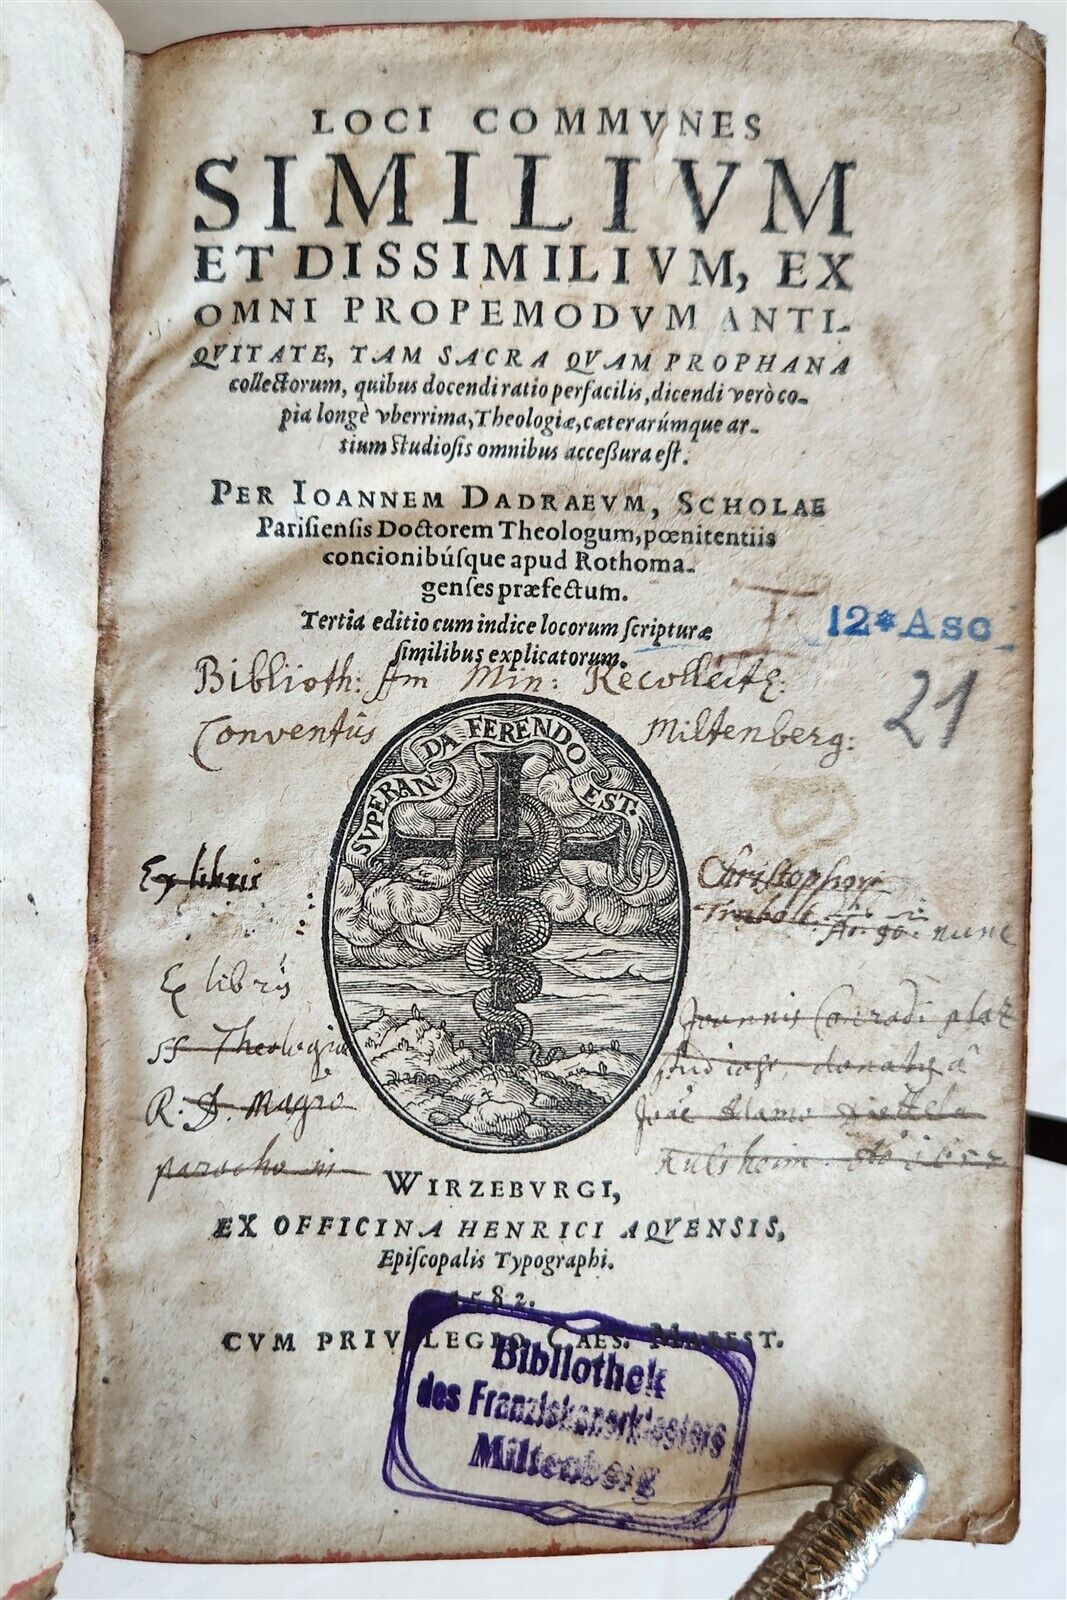 LOCI COMMVNES
SIMILIVM
ET DISSIMILIVM, EX
OMNI PROPEMODVM ANTI-
QVITATE, TAM SACRA QVAM PROPHANA
collectorum, quibus docendi ratio perfacilis, dicendi verò co-
pia longè vberrima, Theologiæ, cæterarúmque ar-
tium studiosis omnibus acceßura est.
PER IOANNEM DADRAEVM, SCHOLAE
Parisiensis Doctorem Theologum, pœnitentiis
concionibúsque apud Rothoma-
genses præfectum.
Tertia editio cum indice locorum scripturæ
similibus explicatorum.
12* Asc
21
Biblioth: ffm Min: Recollectz:
Conventûs Miltenberg:
SVPERANDA FERENDO EST.
Ex libris Christophori
Ao. 90. nunc
Ex librÿs Joannis Conradi
SS Theologiæ donatus â
R. D. Magro Adamo
parocho in
WIRZEBVRGI,
EX OFFICINA HENRICI AQVENSIS,
Episcopalis Typographi.
1582.
CVM PRIVILEGIO CAES. MAIEST.
Bibliothek
des Franziskanerklosters
Miltenberg